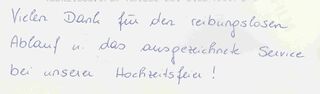 Vielen Dank für den reibungslosen
Ablauf u. das ausgezeichnete Service
bei unserer Hochzeitsfeier !